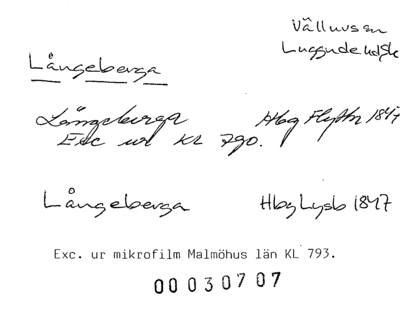 Välluvs sn
Luggude hd, Sk
Långeberga
Långeberga Hbg Flyttn 1847
Exc ur KL 790.
Långeberga Hbg Lysb 1847
Exc. ur mikrofilm Malmöhus län KL 793.
00 030707